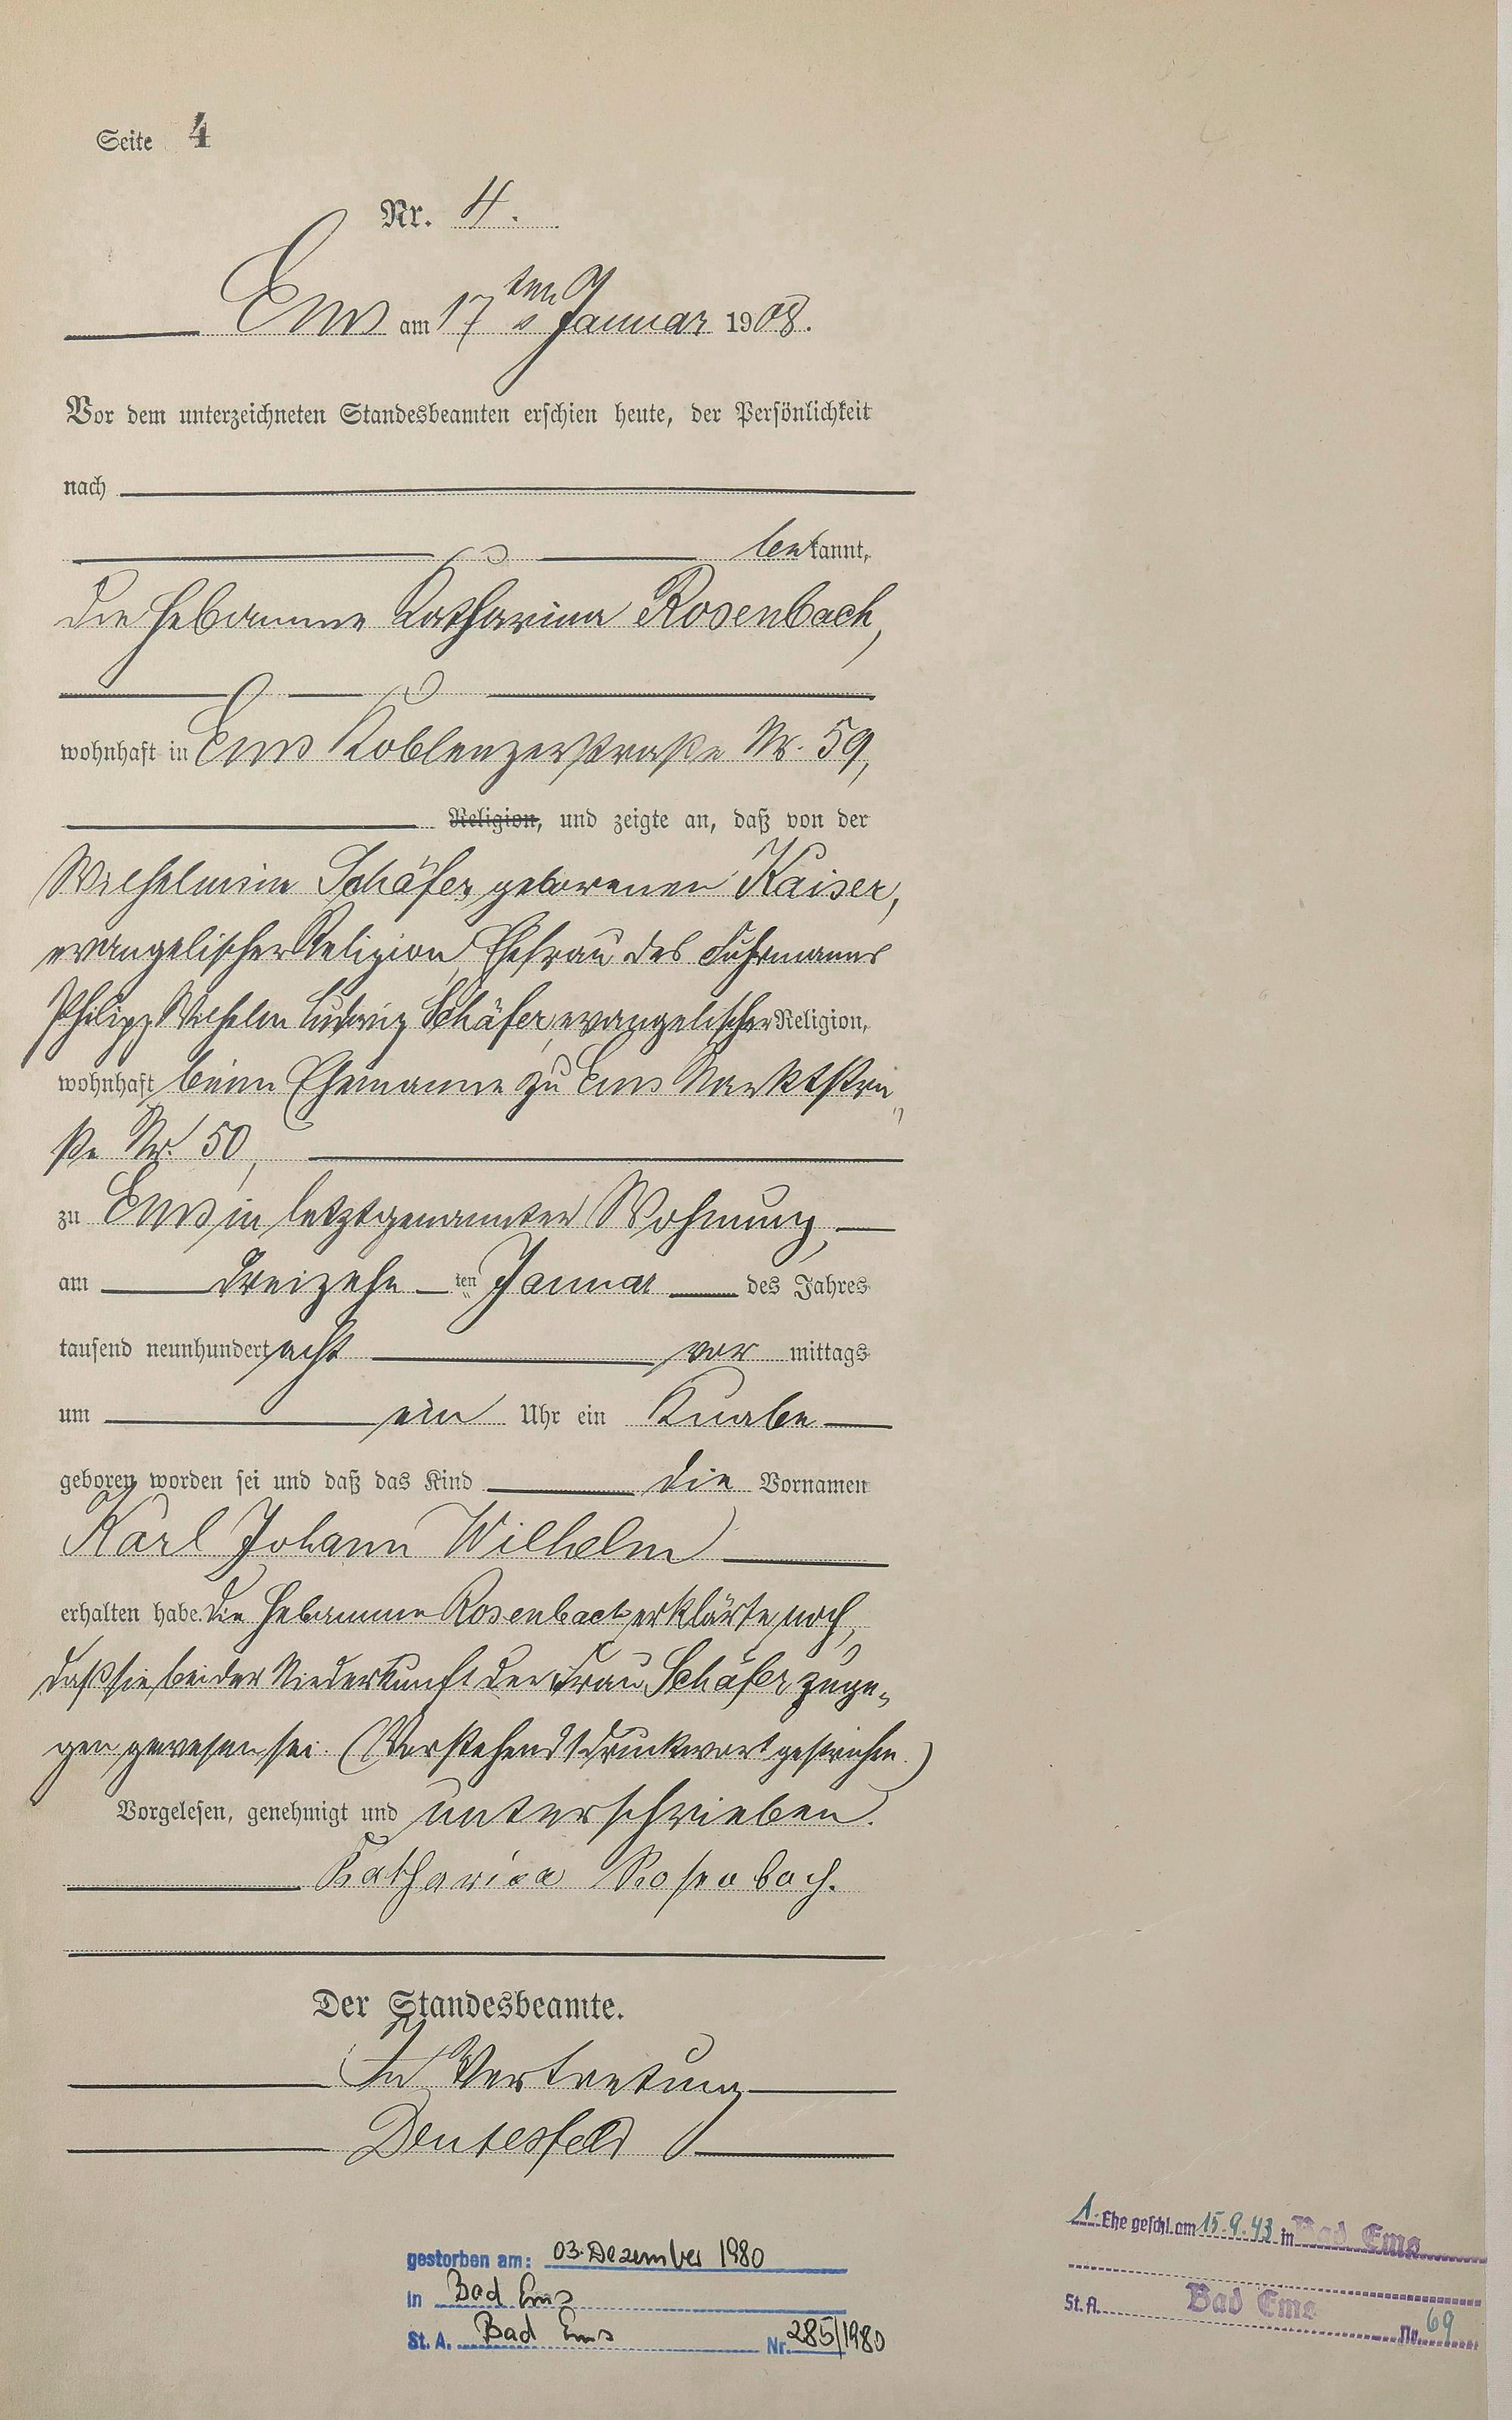 Seite 4
Nr. 4.
Ems am 17ten Januar 1908.
Vor dem unterzeichneten Standesbeamten erschien heute, der Persönlichkeit
nach
bekannt,
die Hebamme Katharina Rosenbach,
wohnhaft in Ems Koblenzerstraße Nr. 59,
Religion, und zeigte an, daß von der
Wilhelmine Schäfer geborenen Kaiser,
evangelischer Religion, Ehefrau des Fuhrmanns
Philipp Wilhelm Ludwig Schäfer, evangelischer Religion,
wohnhaft beim Ehemanne zu Ems Marktstra„
ße Nr. 50,
zu Ems in letztgenannter Wohnung,
am dreizehnten Januar des Jahres
tausend neunhundert acht vor mittags
um ein Uhr ein Knabe
geboren worden sei und daß das Kind die Vornamen
Karl Johann Wilhelm
erhalten habe. Die Hebamme Rosenbach erklärte noch,
daß sie bei der Niederkunft der Frau Schäfer zuge„
gen gewesen sei. (Vorstehend 1 Druckwort gestrichen.)
Vorgelesen, genehmigt und unterschrieben.
Katharina Rosenbach.
Der Standesbeamte.
In Vertretung
Deutesfeld
gestorben am: 03. Dezember 1980
in Bad Ems
St. A. Bad Ems Nr. 285/1980
1. Ehe geschl. am 15.9.43 in Bad Ems
St. A. Bad Ems Nr. 69